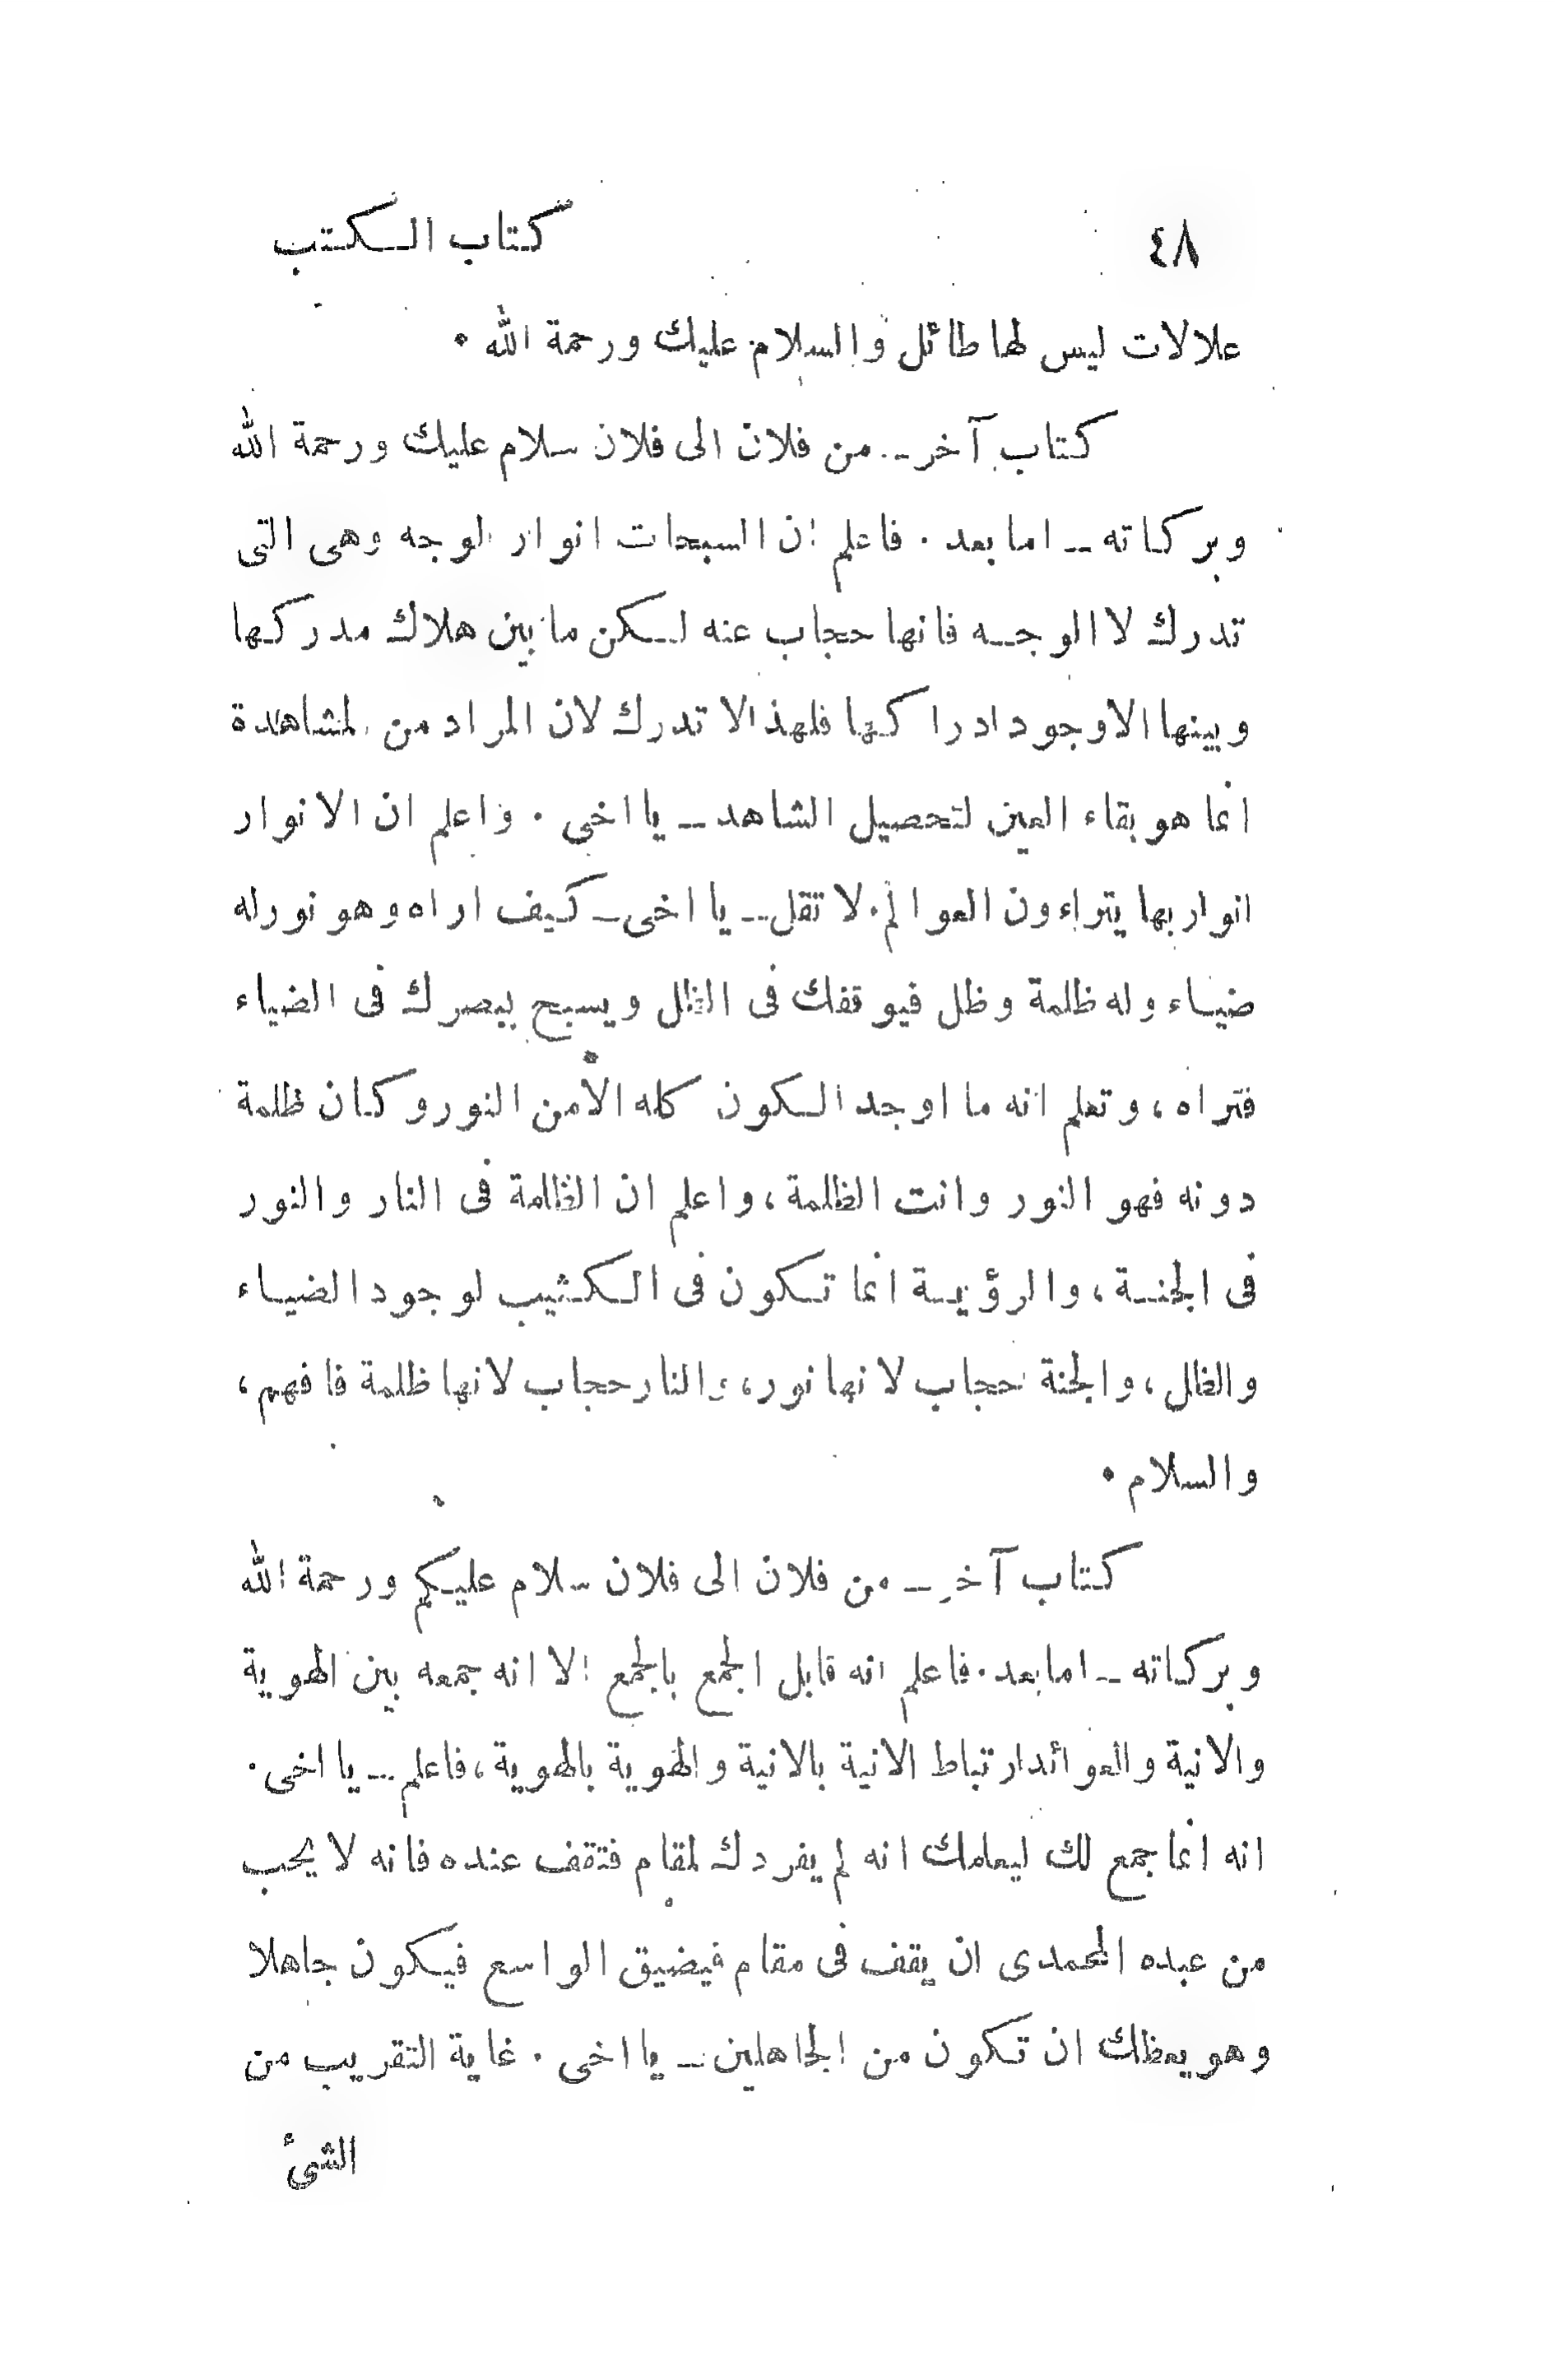 ٤٨ كتاب الكتب
علالات ليس لها طائل والسلام عليك ورحمة الله .
كتاب آخر ـ من فلان الى فلان سلام عليك ورحمة الله
وبركاته ـ اما بعد . فاعلم ان السبحات انوار الوجه وهى التى
تدرك لا الوجه فانها حجاب عنه لكن ما بين هلاك مدركها
وبينها الا وجود ادراكها فلهذا لا تدرك لان المراد من المشاهدة
انما هو بقاء العين لتحصيل الشاهد ـ يا اخى . واعلم ان الانوار
انوار بها يتراءون العوالم . لا تقل ـ يا اخى ـ كيف اراه وهو نور له
ضياء وله ظلمة وظل فيوقفك فى الظل ويسبح ببصرك فى الضياء
فتراه ، وتعلم انه ما اوجد الكون كله الا من النور وكان ظلمة
دونه فهو النور وانت الظلمة ، واعلم ان الظلمة فى النار والنور
فى الجنة ، والرؤية انما تكون فى الكثيب لوجود الضياء
والظل ، والجنة حجاب لانها نور ، والنار حجاب لانها ظلمة فافهم ،
والسلام .
كتاب آخر ـ من فلان الى فلان سلام عليكم ورحمة الله
وبركاته ـ اما بعد . فاعلم انه قابل الجمع بالجمع الا انه جمعه بين الهوية
والانية والعوائد ارتباط الانية بالانية والهوية بالهوية ، فاعلم ـ يا اخى .
انه انما جمع لك ليعلمك انه لم يفردك لمقام فتقف عنده فانه لا يحب
من عبده المحمدى ان يقف فى مقام فيضيق الواسع فيكون جاهلا
وهو يعظك ان تكون من الجاهلين ـ يا اخى . غاية التقريب من
الشئ